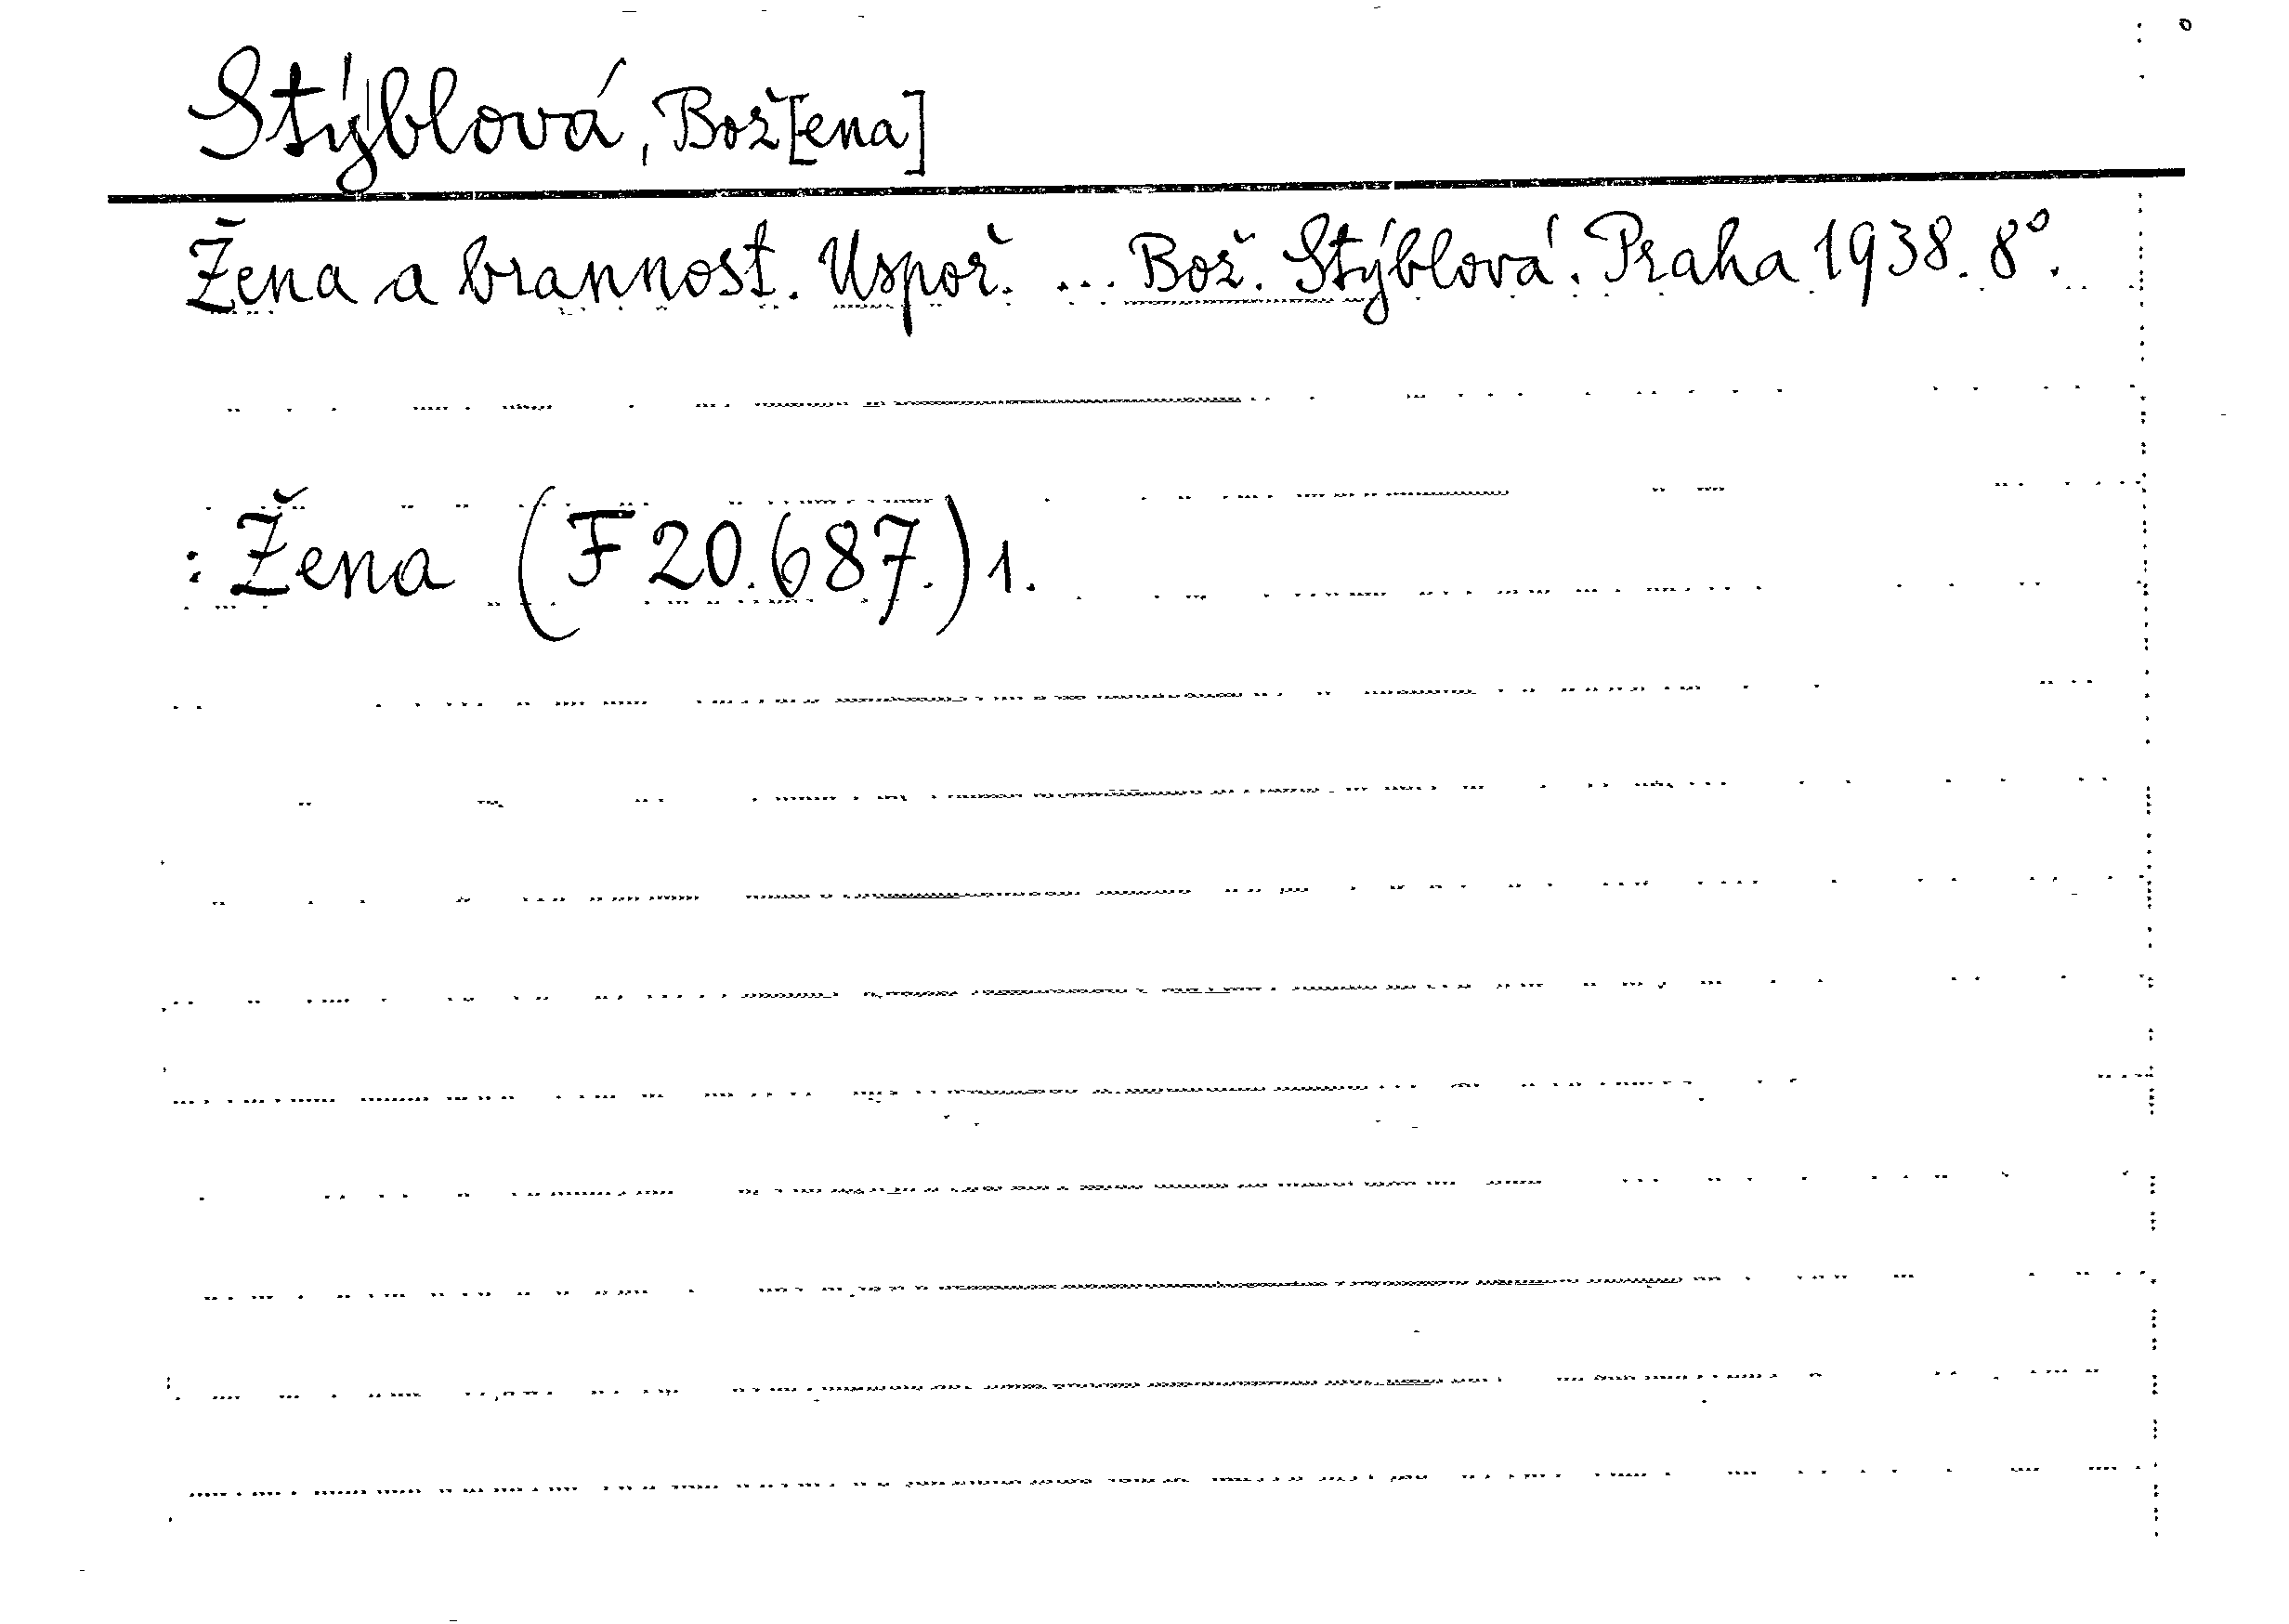 Stýblová, Bož[ena]
Žena a brannost. Uspoř. ... Bož. Stýblová. Praha 1938. 8°.
: Žena (F 20.687.) 1.